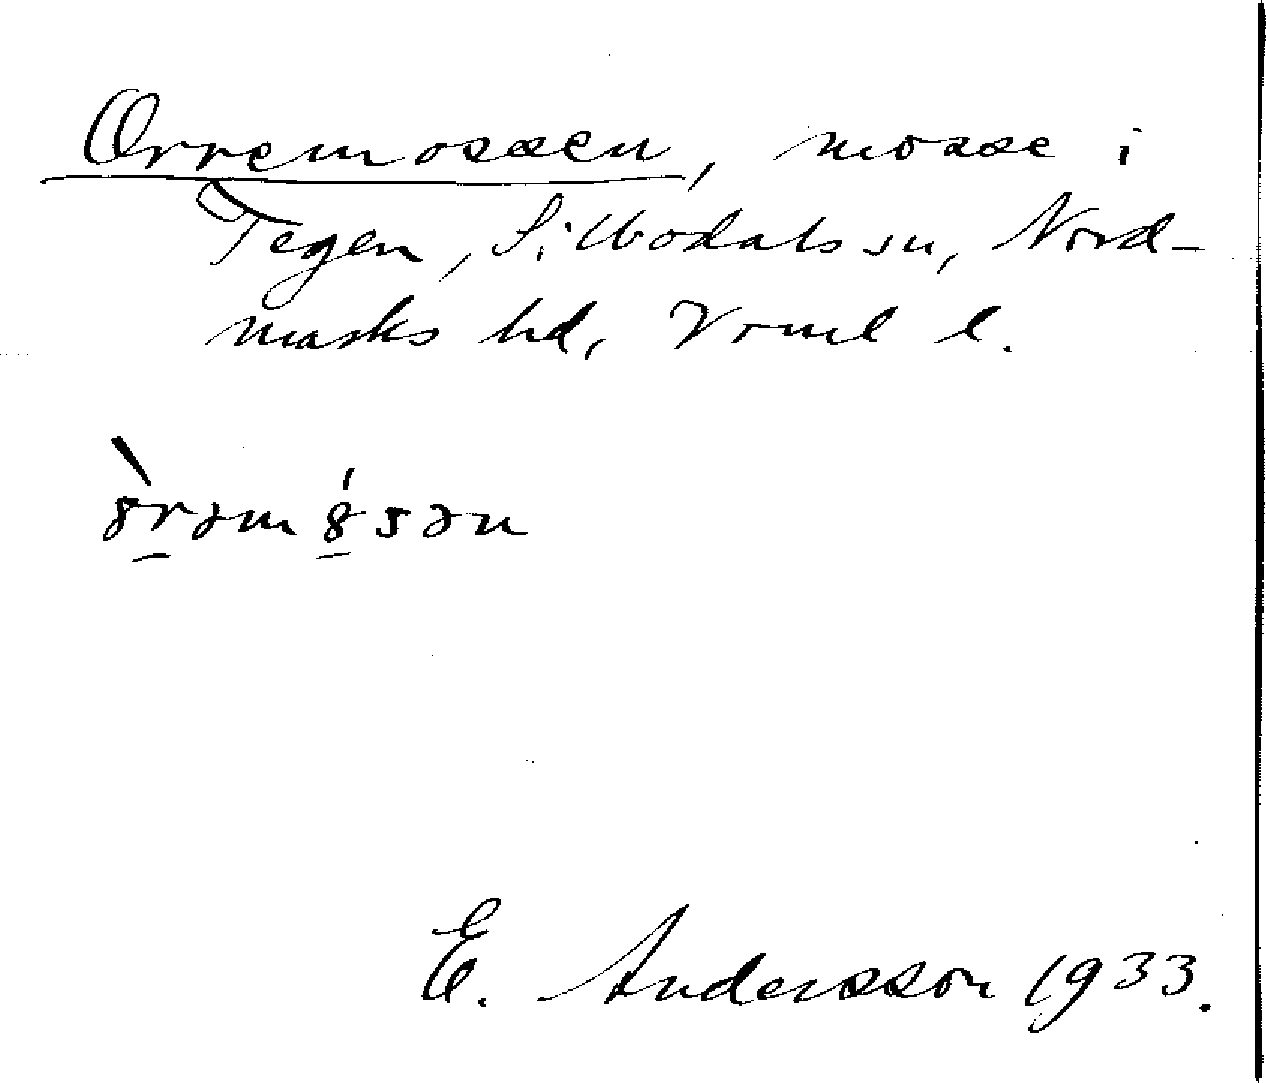 Orremossen, mosse i
Tegen, Sillbodals sn, Nord-
marks hd, Vrml l.
E. Andersson 1933.